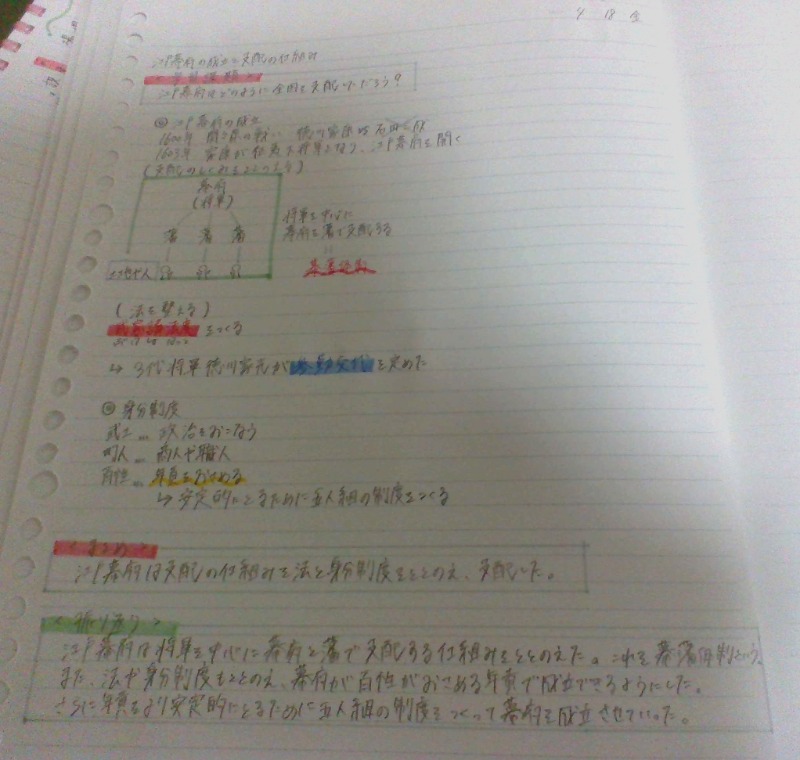 4 18 金
江戸幕府の成立と支配の仕組み
<学習課題>
江戸幕府はどのように全国を支配しただろう?
◎江戸幕府の成立
1600年 関ヶ原の戦い 徳川家康は石田三成
1603年 家康が征夷大将軍となり、江戸幕府を開く
(支配のしくみをととのえる)
幕府
(将軍)
藩 藩 藩
将軍を中心に
幕府と藩で支配する
幕藩体制
(法を整える)
武家諸法度をつくる
ぶけしょはっと
↳ 3代将軍徳川家光が参勤交代を定めた
◎身分制度
武士… 政治をおこなう
町人… 商人や職人
百姓… 年貢をおさめる
↳ 安定的にとるために五人組の制度をつくる
<まとめ>
江戸幕府は支配の仕組みを法と身分制度をととのえ、支配した。
<振り返り>
江戸幕府は将軍を中心に幕府と藩で支配する仕組みをととのえた。これを幕藩体制という。
また、法や身分制度もととのえ、幕府が百姓がおさめる年貢で成立できるようにした。
さらに年貢をより安定的にとるために五人組の制度をつくって幕府を成立させていった。